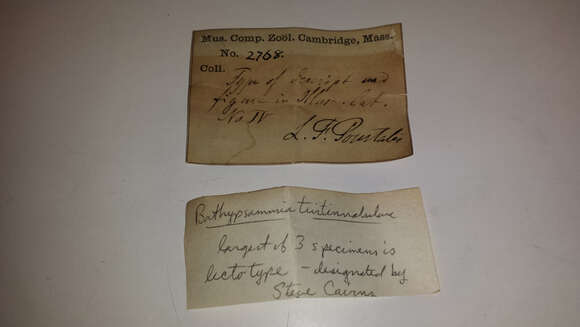 Mus. Comp. Zoöl. Cambridge, Mass.
No. 2768.
Coll.
Type of descript and
figure in Illus. Cat.
No IV
L. F. Pourtales
Bathypsammia tintinnabulum
largest of 3 specimens is
lectotype - designated by
Steve Cairns